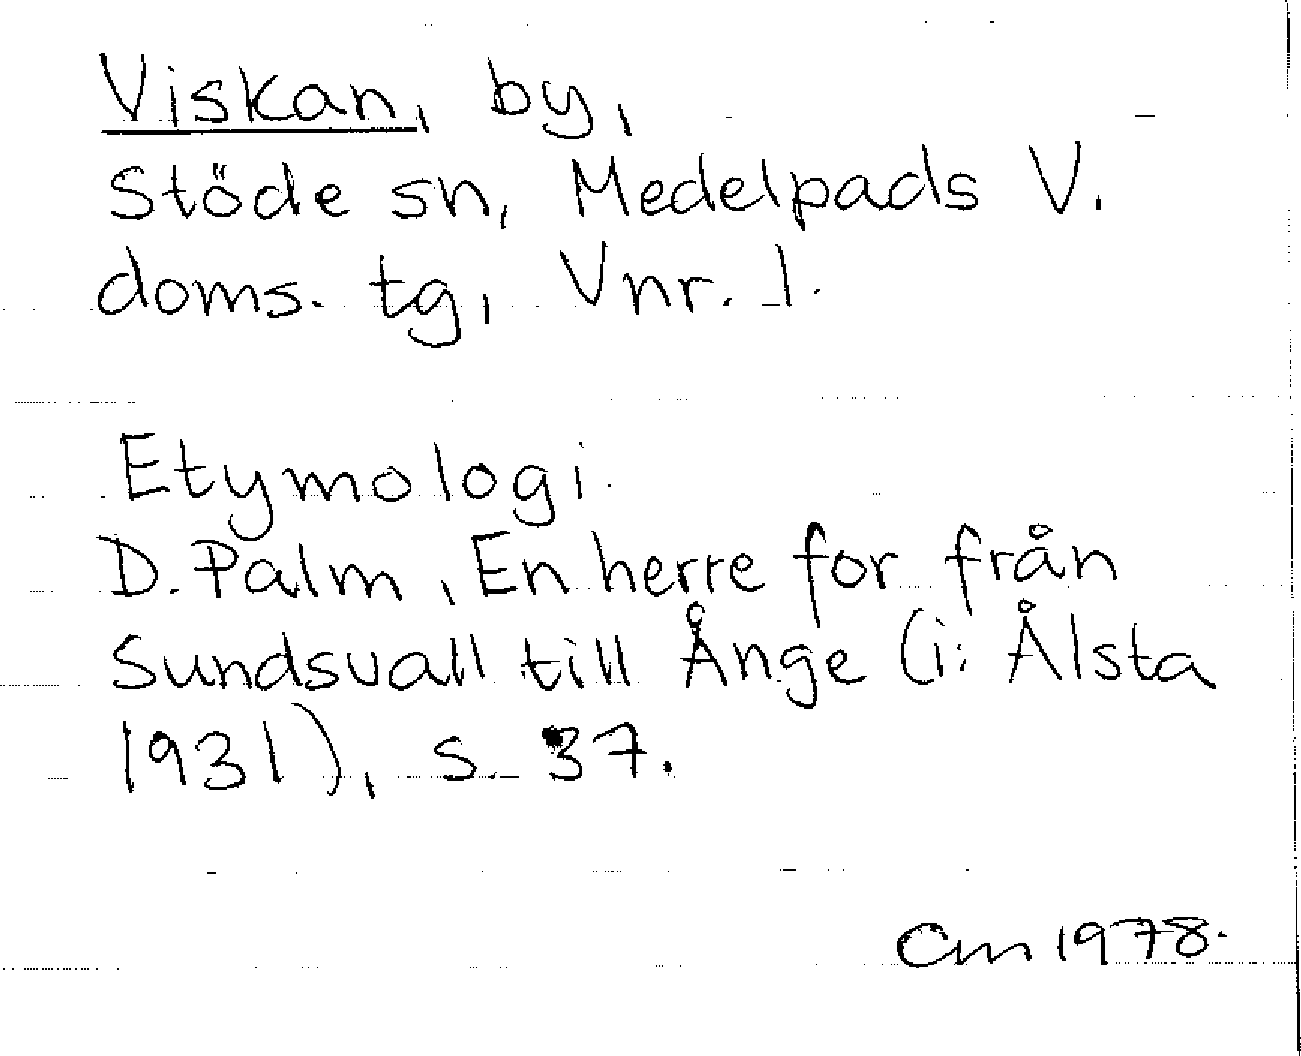 Viskan, by,
Stöde sn, Medelpads V.
doms. tg, Vnr. 1.
Etymologi.
D. Palm, En herre for från
Sundsvall till Ånge (i: Ålsta
1931), s. 37.
Cm 1978.